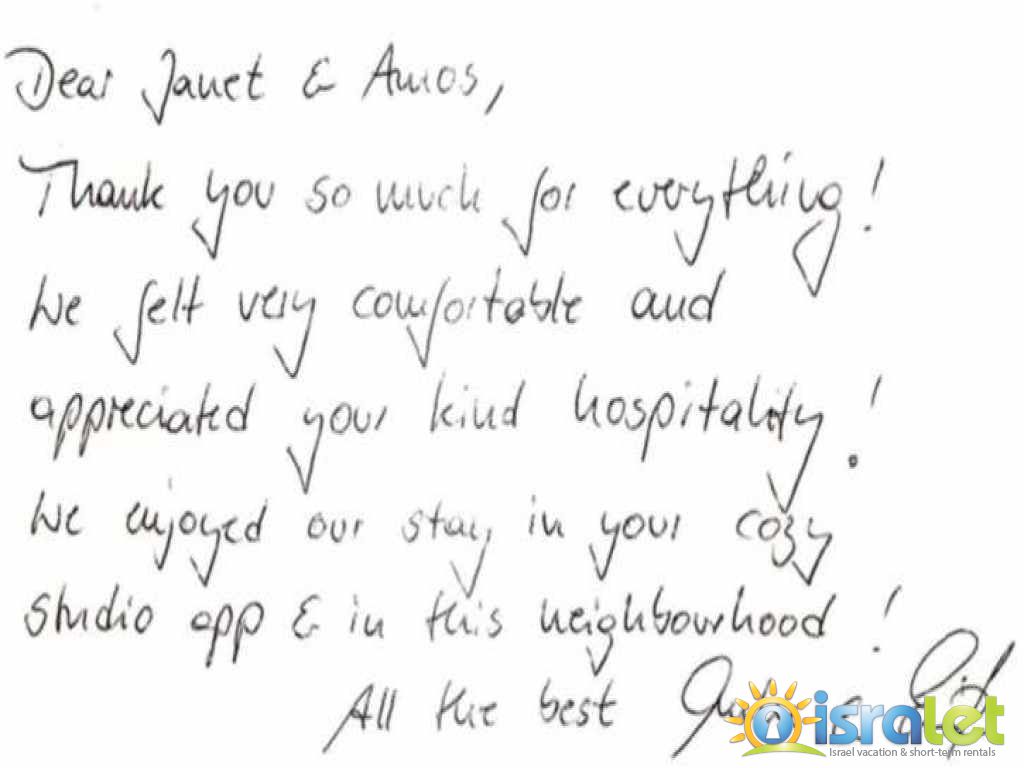 Dear Janet & Amos,
Thank you so much for everything!
We felt very comfortable and
appreciated your kind hospitality!
We enjoyed our stay in your cozy
studio app & in this neighbourhood!
All the best
isralet
Israel vacation & short-term rentals